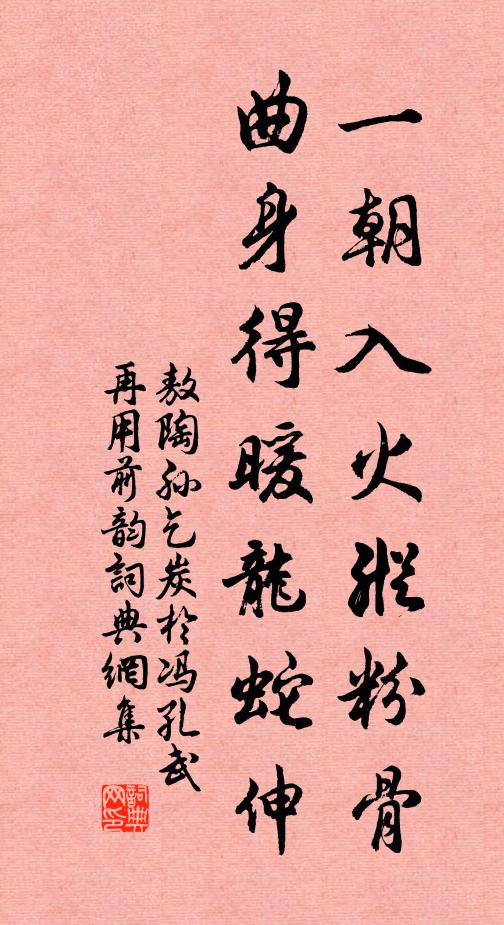 一朝入火縱粉骨
曲身得暖龍蛇伸
敖陶孫乞炭於冯孔武
再用前韵詞典網集
詞典网印